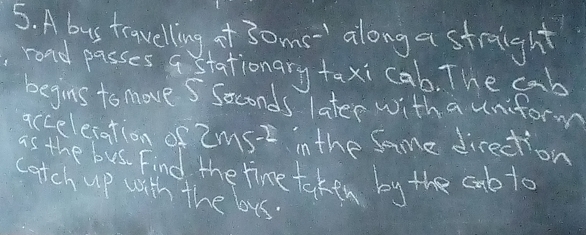 5. A bus travelling at 30ms-¹ along a straight
road passes a stationary taxi cab. The cab
begins to move 5 Seconds later with a uniform
acceleration of 2ms-2 in the same direction
as the bus. Find the time taken by the cab to
catch up with the bus.